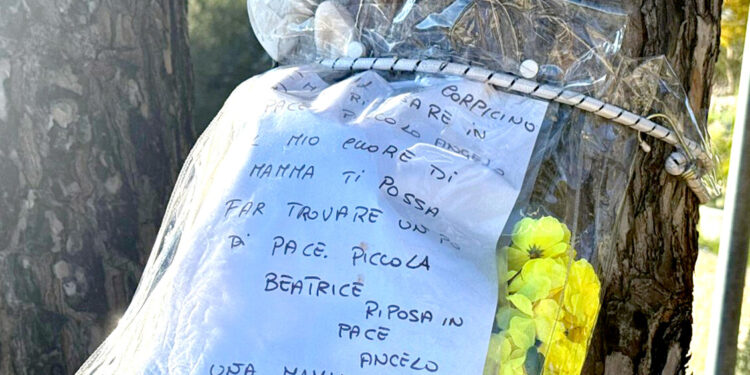 CORPICINO
RIPOSARE IN
PACE PICCOLO ANGELO
IL MIO CUORE DI
MAMMA TI POSSA
FAR TROVARE UN PO
DI PACE. PICCOLA
BEATRICE
RIPOSA IN
PACE
ANGELO
UNA MAMMA